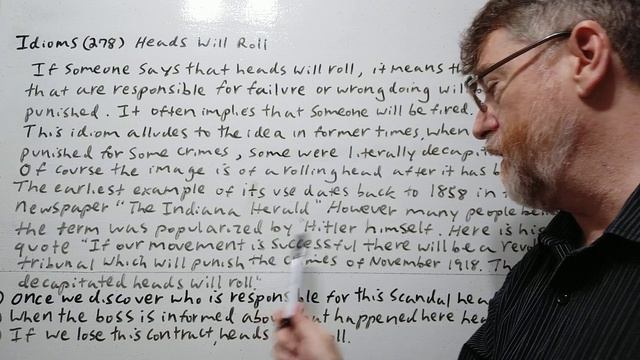 Idioms (278) Heads Will Roll
If someone says that heads will roll, it means th
that are responsible for failure or wrongdoing will
punished. It often implies that someone will be fired.
This idiom alludes to the idea in former times, when
punished for some crimes, some were literally decapit
Of course the image is of a rolling head after it has b
The earliest example of its use dates back to 1858 in
newspaper "The Indiana Herald" However many people be
the term was popularized by Hitler himself. Here is his
quote "If our movement is successful there will be a revol
tribunal which will punish the crimes of November 1918. Th
decapitated heads will roll."
) Once we discover who is responsible for this scandal hea
) When the boss is informed abou at happened here hea
) If we lose this contract, heads ll.